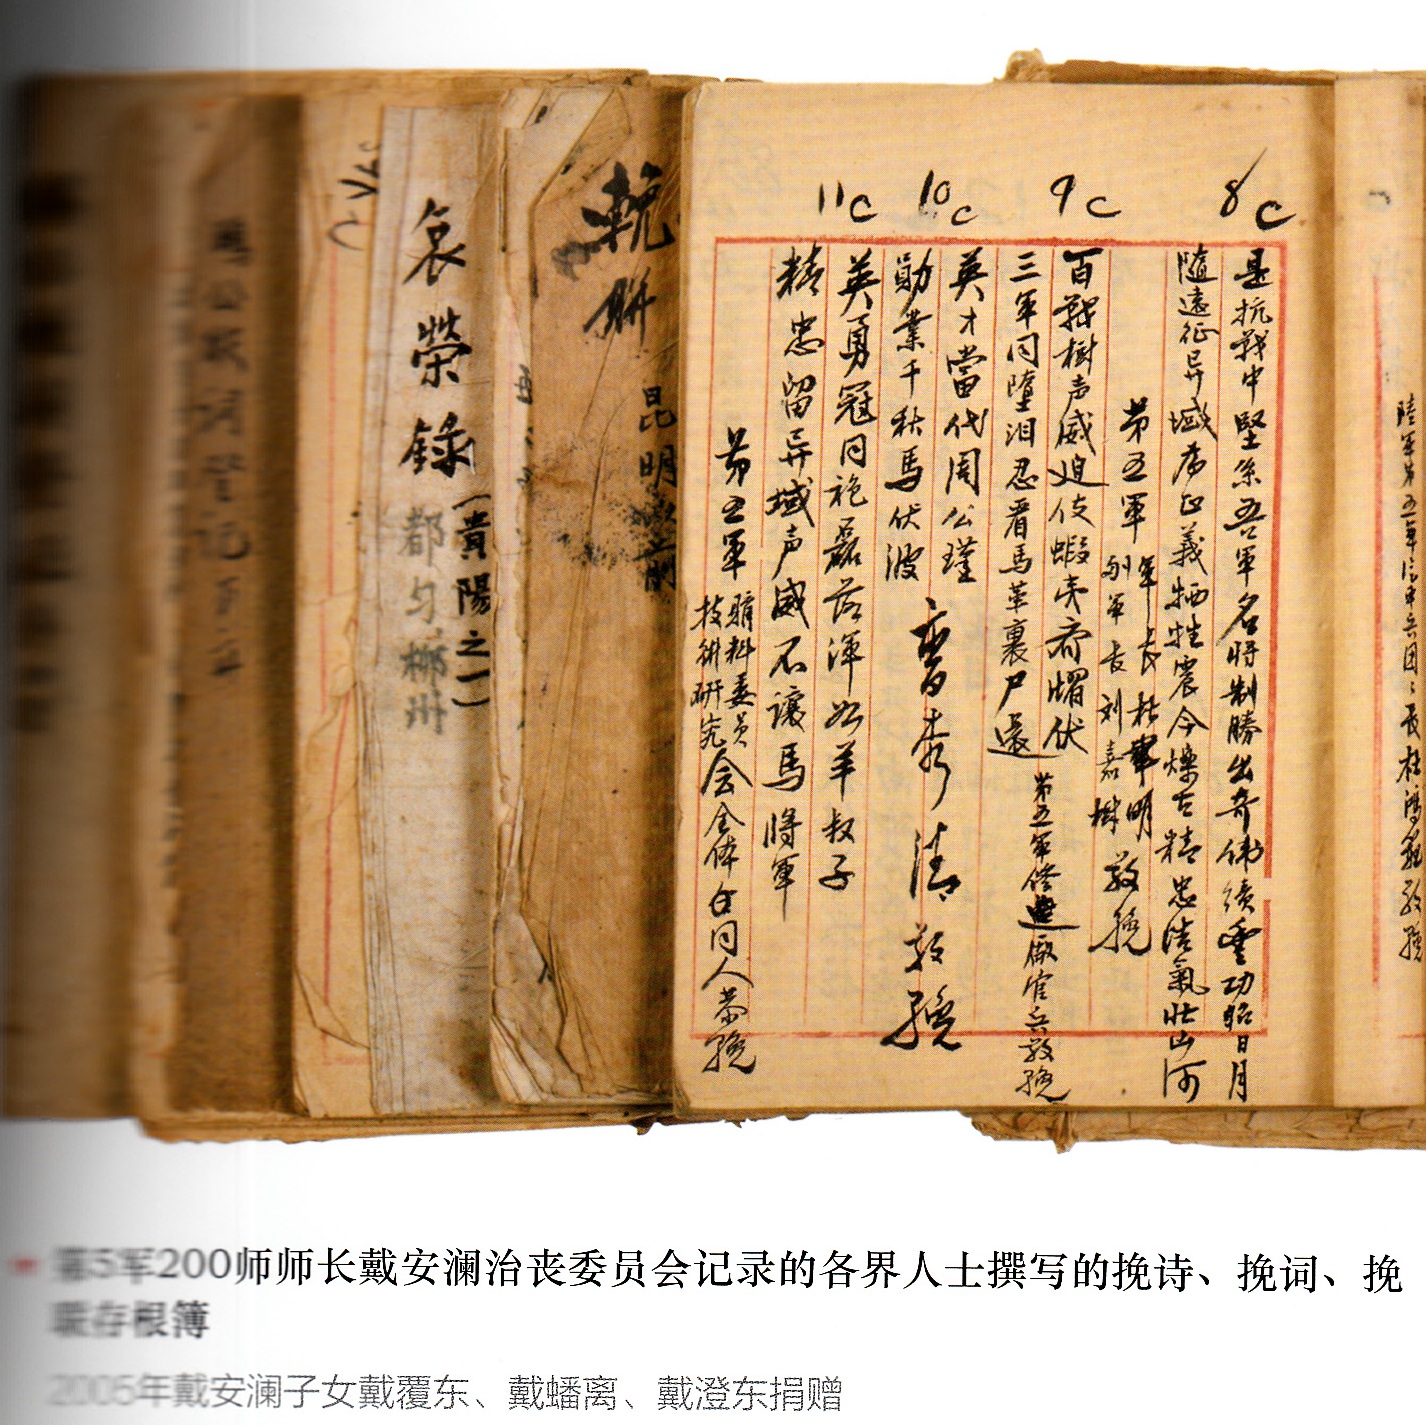 8c
是抗戰中堅系吾軍名将制勝出奇偉績豊功昭日月
隨遠征异域為正義牺牲震今爍古精忠浩氣壮山河
第五軍
軍長杜聿明
副軍長刘嘉樹
敬挽
9c
百戰樹声威迫使蝦夷齐慴伏
三軍同墮泪忍看馬革裹尸還
第五軍修造廠官兵敬挽
10c
英才當代周公瑾
勛業千秋馬伏波
敬挽
11c
英勇冠同袍磊落渾如羊叔子
精忠留异域声威不讓馬将軍
第五軍
購料委員
技術研究
会全体仝同人恭挽
挽联
昆明
哀榮錄
(貴陽之一)
都匀柳州
陸軍第五軍
敬挽
第5军200师师长戴安澜治丧委员会记录的各界人士撰写的挽诗、挽词、挽
联存根簿
2005年戴安澜子女戴覆东、戴蟠离、戴澄东捐赠